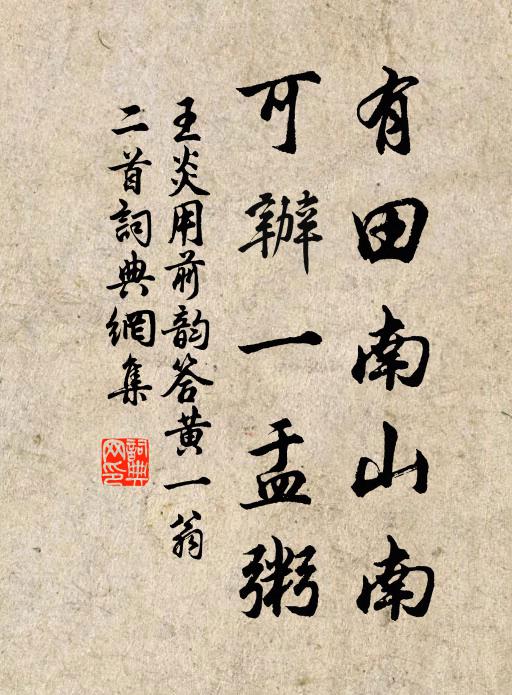 有田南山南
可辦一盂粥
王炎用前韵答黄一翁
二首詞典網集
詞典
网印